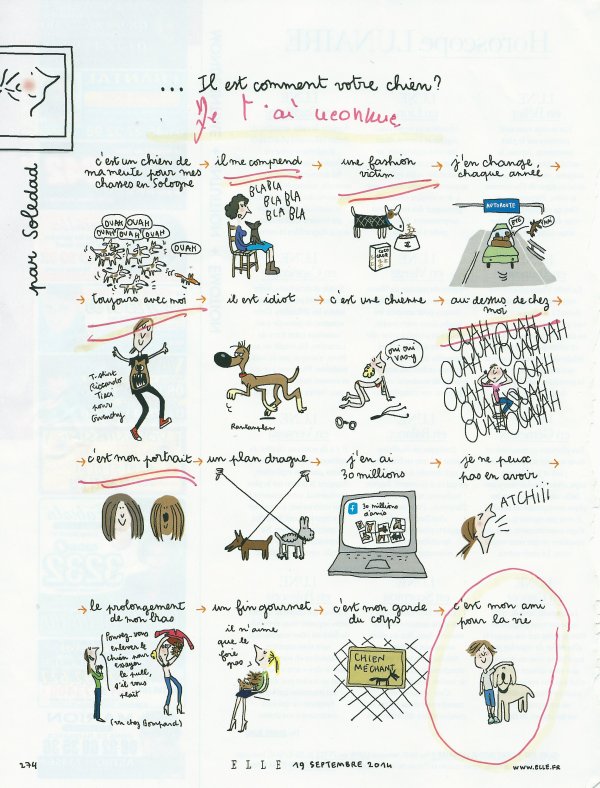 ... Il est comment votre chien?
Je t'ai reconnue
par Soledad
c'est un chien de
ma meute pour mes
chasses en Sologne
OUAH OUAH
OUAH OUAH OUAH
OUAH
il me comprend
BLABLA
BLA BLA
BLA BLA
une fashion
victim
j'en change
chaque année
AUTOROUTE
BYE
toujours avec moi
T-shirt
Riccardo
Tisci
pour
Givenchy
il est idiot
Rantanplan
c'est une chienne
oui oui
vas-y
au-dessus de chez
moi
OUAH OUAH OUAH
OUAH OUAH
OUAH OUAH
OUAH OUAH
OUAH OUAH
c'est mon portrait
un plan drague
j'en ai
30 millions
30 millions
d'amis
je ne peux
pas en avoir
ATCHIII
le prolongement
de mon bras
Pouvez-vous
enlever le
chien pour
essayer
le pull,
s'il vous
plaît
(vu chez Bompard)
un fin gourmet
il n'aime
que le
foie
gras
c'est mon garde
du corps
CHIEN
MÉCHANT
c'est mon ami
pour la vie
274
ELLE 19 SEPTEMBRE 2014
WWW.ELLE.FR